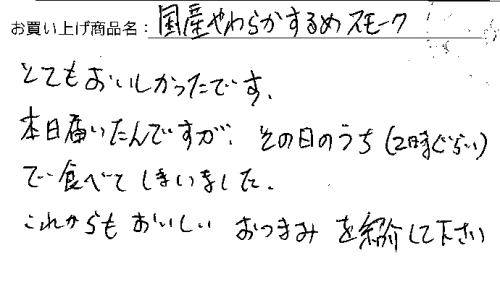 お買い上げ商品名：国産やわらかするめスモーク
とてもおいしかったです。
本日届いたんですが、その日のうち(2時ぐらい)
で食べてしまいました。
これからもおいしいおつまみを紹介して下さい